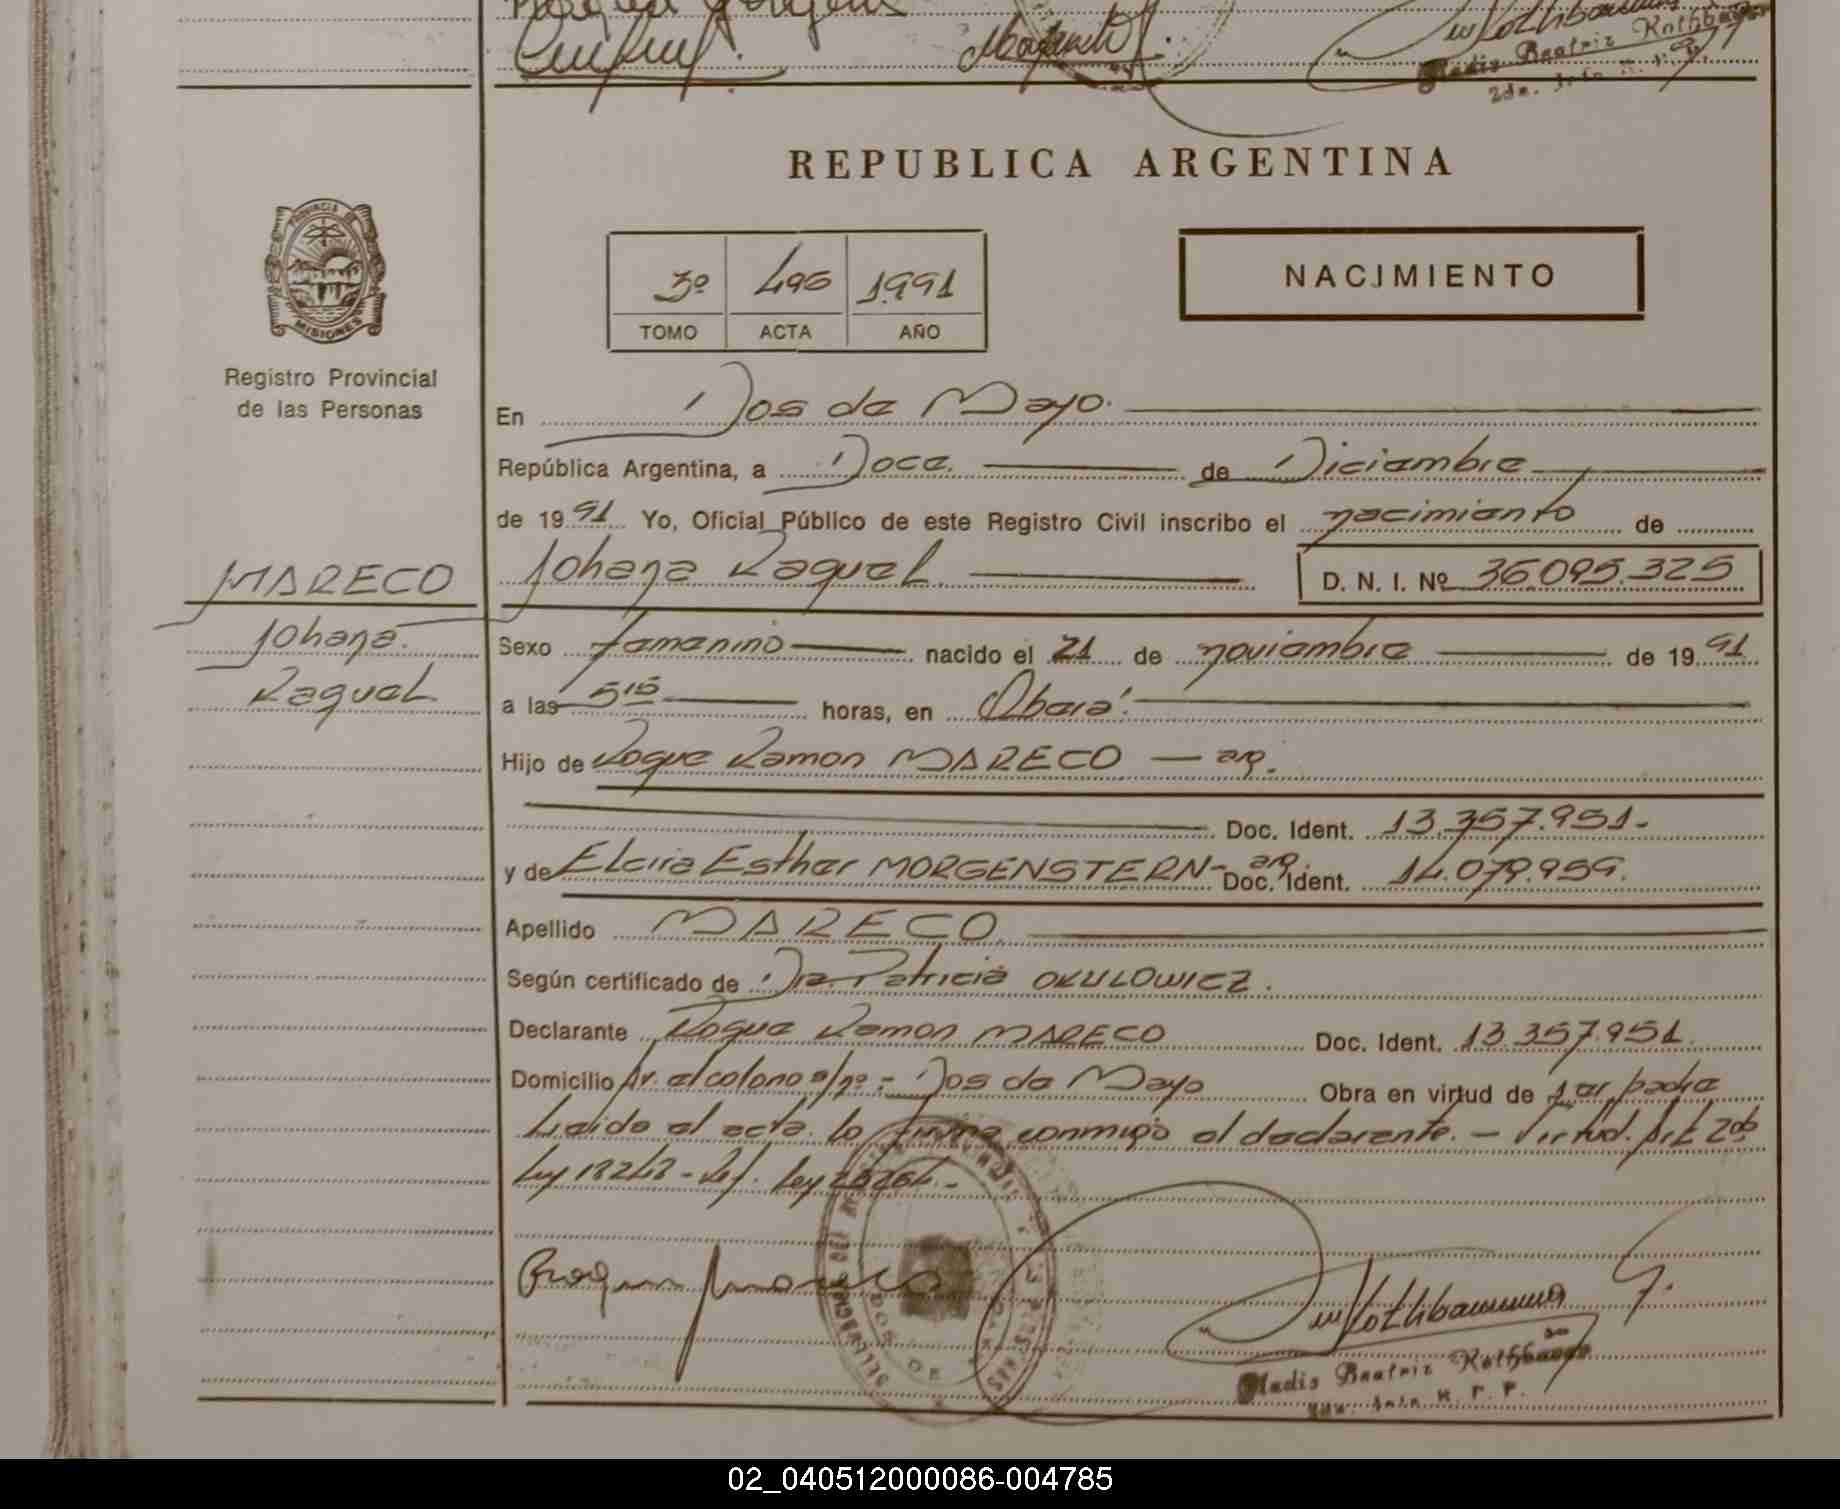 Gladis Beatriz Kothbauer
REPUBLICA ARGENTINA
PROVINCIA DE
MISIONES
Registro Provincial
de las Personas
3º 496 1991
TOMO ACTA AÑO
NACIMIENTO
En Dos de Mayo.
República Argentina, a Doce. de Diciembre
de 1991 Yo, Oficial Público de este Registro Civil inscribo el nacimiento de
MARECO
Johana Raquel D. N. I. Nº 36.095.325
Johana.
Raquel
Sexo femenino nacido el 21 de noviembre de 1991
a las 5 15 horas, en Oberá.
Hijo de Roque Ramon MARECO — arg.
Doc. Ident. 13.357.951.-
y de Elcira Esther MORGENSTERN - arg. Doc. Ident. 14.079.959.
Apellido MARECO.
Según certificado de Dra. Patricia OKULOWICZ.
Declarante Roque Ramon MARECO Doc. Ident. 13.357.951.
Domicilio Av. el colono s/nº.- Dos de Mayo Obra en virtud de ser padre
Leida el acta. lo firma conmigo el declarante. - Virtud. Art 2do
Ley 18248 - Ref. Ley
DOS DE
Gladis Beatriz Kothbauer
02_040512000086-004785